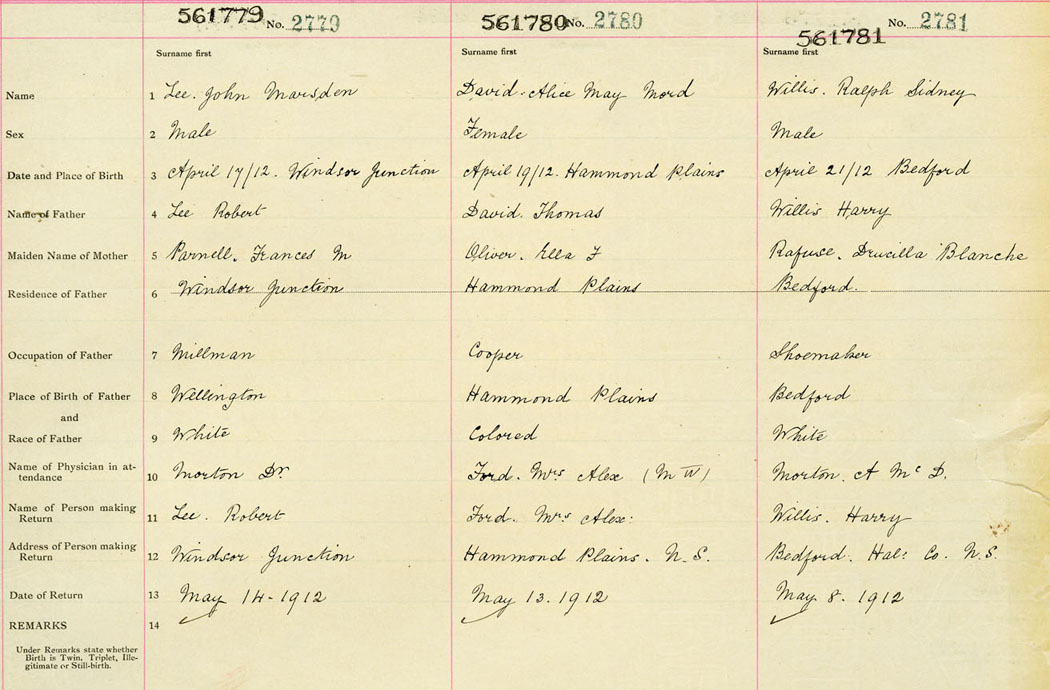 561779 No. 2779 561780 No. 2780 561781 No. 2781
Surname first Surname first Surname first
Name 1 Lee. John Marsden David. Alice May Mord Willis. Ralph Sidney
Sex 2 Male Female Male
Date and Place of Birth 3 April 17/12. Windsor Junction April 19/12. Hammond Plains April 21/12 Bedford
Name of Father 4 Lee Robert David. Thomas Willis Harry
Maiden Name of Mother 5 Parnell. Frances M Oliver. Ella F Rafuse. Drucilla Blanche
Residence of Father 6 Windsor Junction Hammond Plains Bedford.
Occupation of Father 7 Millman Cooper Shoemaker
Place of Birth of Father 8 Wellington Hammond Plains Bedford
and
Race of Father 9 White Colored White
Name of Physician in at-
tendance 10 Morton Dr. Ford. Mrs Alex (M W) Morton. A Mc D.
Name of Person making
Return 11 Lee. Robert Ford. Mrs Alex: Willis. Harry
Address of Person making
Return 12 Windsor Junction Hammond Plains. N.S. Bedford. Hal: Co. N.S.
Date of Return 13 May 14-1912 May 13. 1912 May 8. 1912
REMARKS 14
Under Remarks state whether
Birth is Twin. Triplet, Ille-
gitimate or Still-birth.